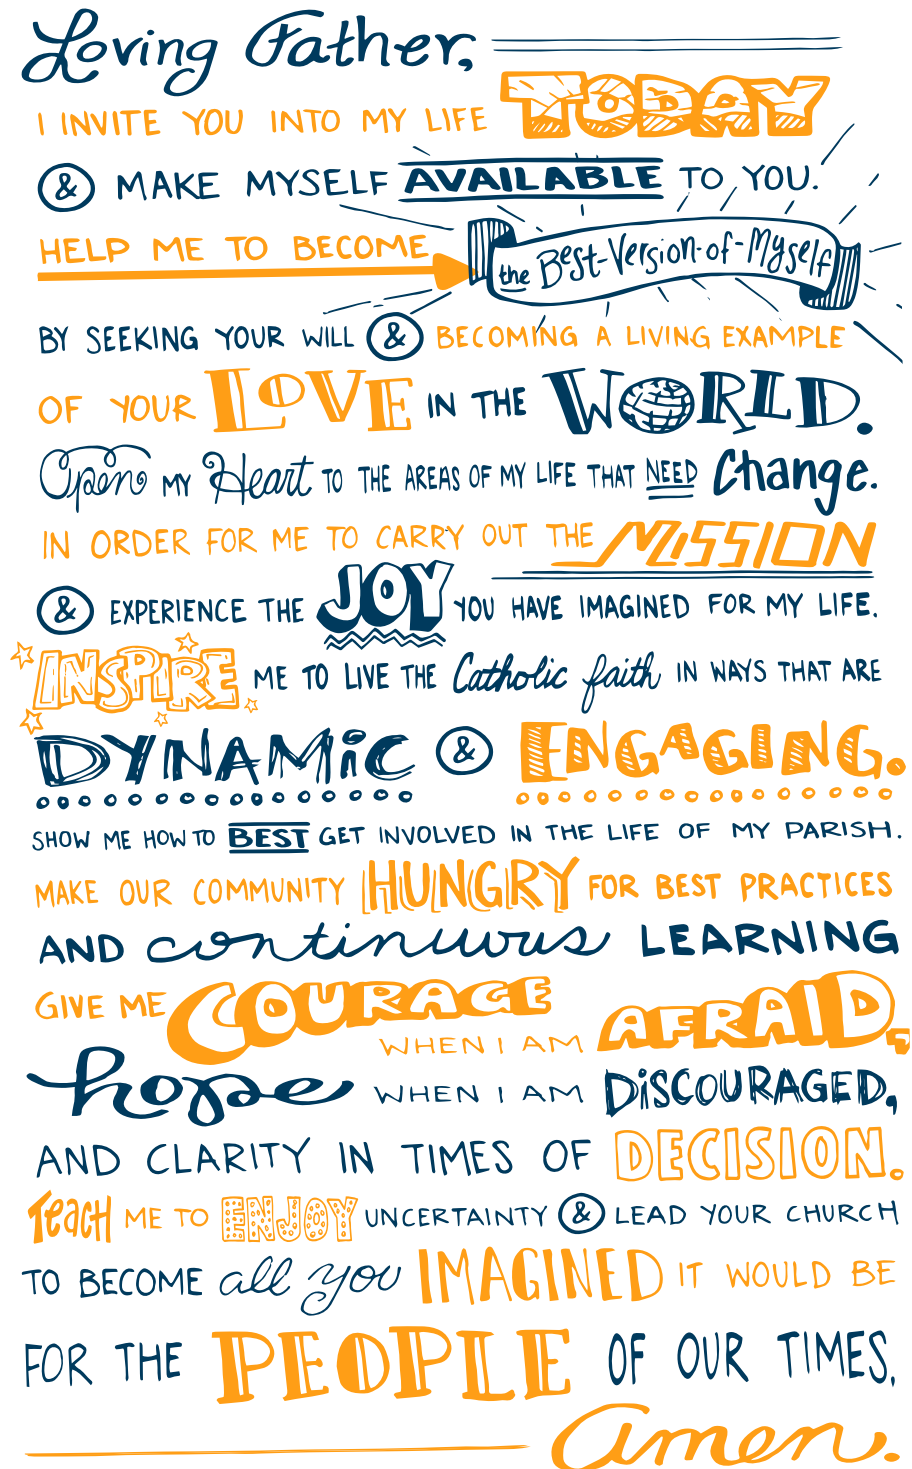 Loving Father,
I INVITE YOU INTO MY LIFE TODAY
& MAKE MYSELF AVAILABLE TO YOU.
HELP ME TO BECOME the Best-Version-of-Myself
BY SEEKING YOUR WILL & BECOMING A LIVING EXAMPLE
OF YOUR LOVE IN THE WORLD.
Open MY Heart TO THE AREAS OF MY LIFE THAT NEED Change.
IN ORDER FOR ME TO CARRY OUT THE MISSION
& EXPERIENCE THE JOY YOU HAVE IMAGINED FOR MY LIFE.
INSPIRE ME TO LIVE THE Catholic faith IN WAYS THAT ARE
DYNAMiC & ENGAGING.
SHOW ME HOW TO BEST GET INVOLVED IN THE LIFE OF MY PARISH.
MAKE OUR COMMUNITY HUNGRY FOR BEST PRACTICES
AND continuous LEARNING
GIVE ME COURAGE WHEN I AM AFRAID,
hope WHEN I AM DiSCOURAGED,
AND CLARITY IN TIMES OF DECISION.
Teach ME TO ENJOY UNCERTAINTY & LEAD YOUR CHURCH
TO BECOME all you IMAGINED IT WOULD BE
FOR THE PEOPLE OF OUR TIMES.
amen.